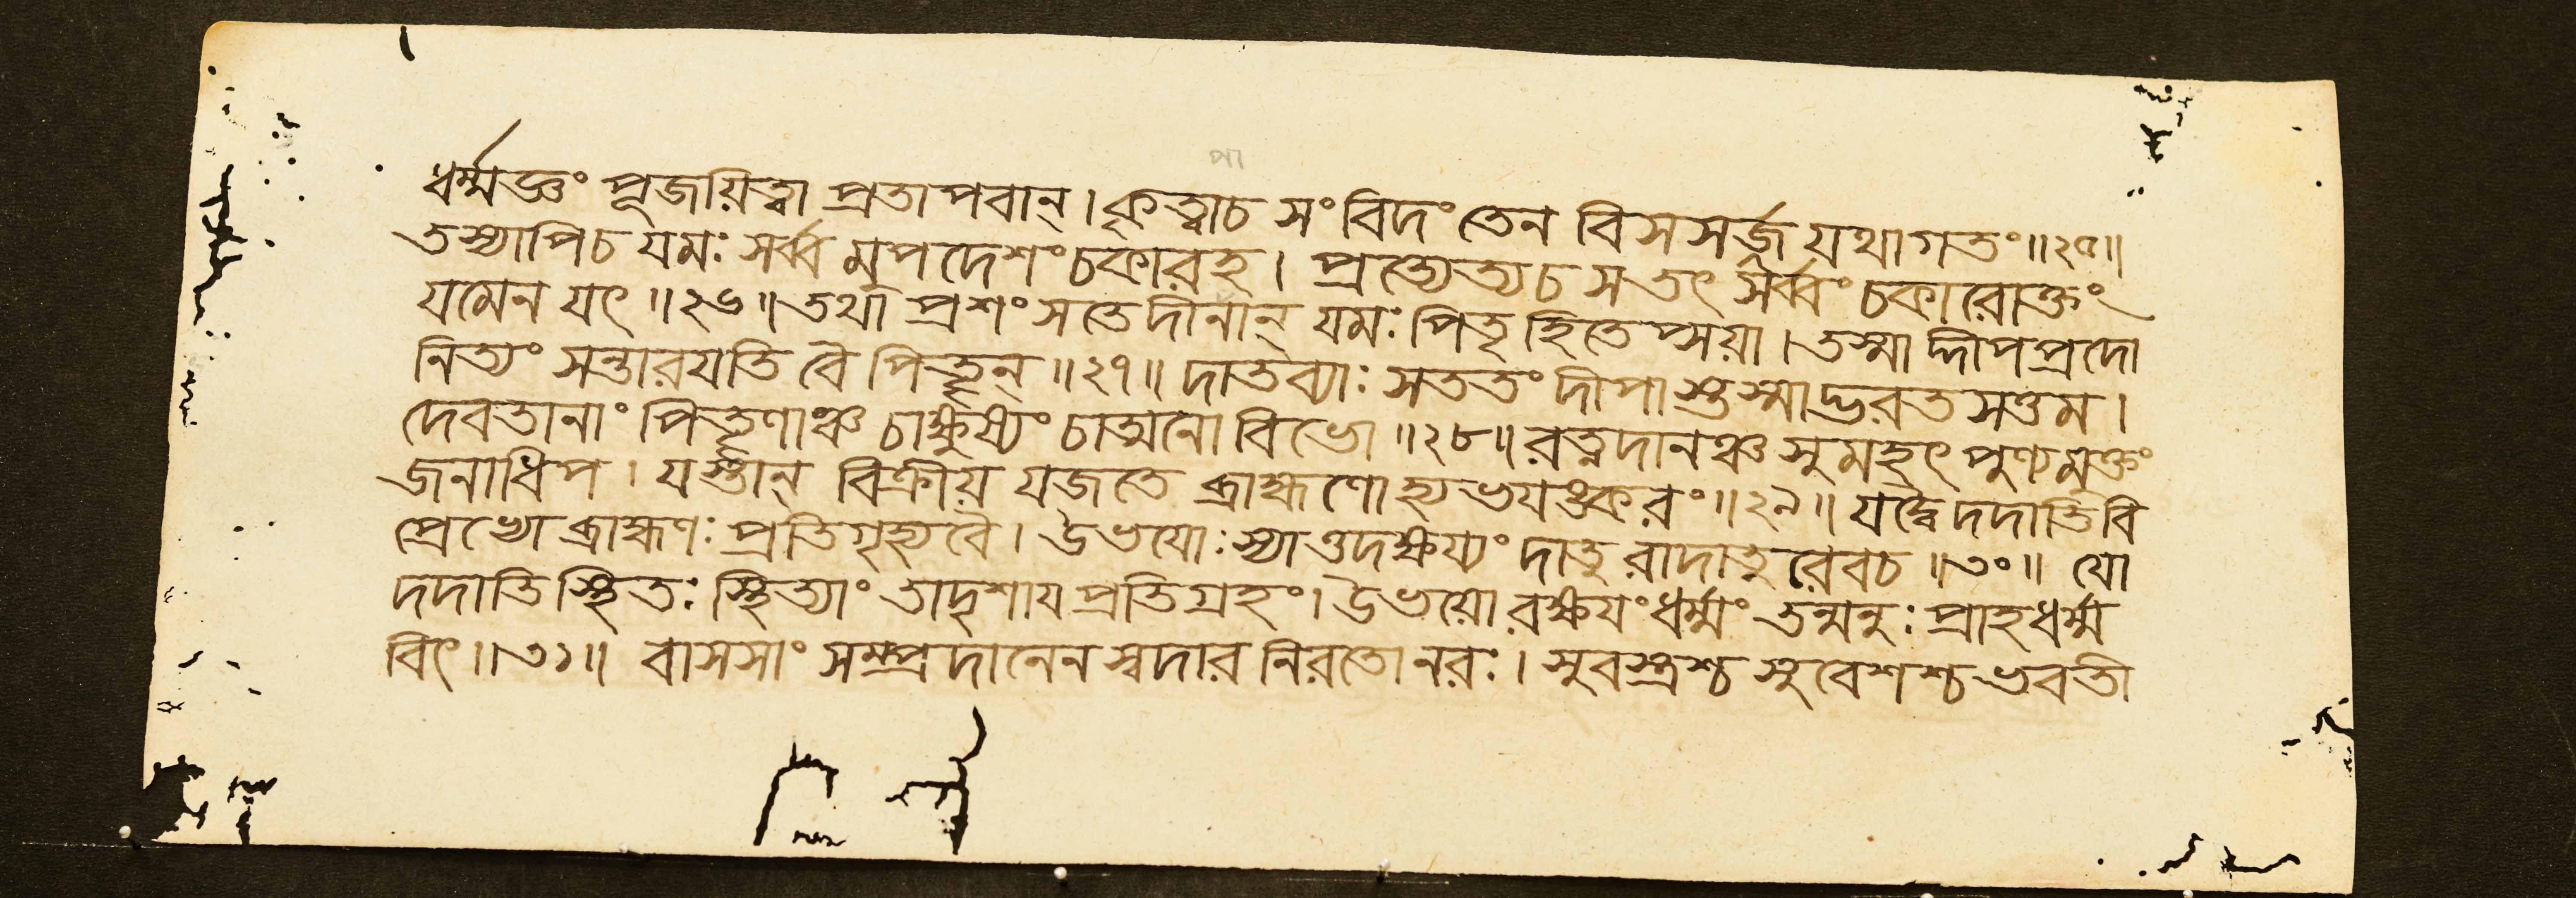 পা
ধর্ম্মজ্ঞং পূজয়িত্বা প্রতাপবান্। কৃত্বাচ সংবিদং তেন বিসসর্জ যথাগতং॥২৫॥
তস্যাপিচ যমঃ সর্ব্ব মুপদেশং চকারহ। প্রত্যেত্যচ সতৎ সর্ব্বং চকারোক্তং
যমেন যৎ॥২৬॥ তথা প্রশংসতেদীনান্ যমঃ পিতৃহিতেপ্সয়া। তস্মাদ্দীপপ্রদো
নিত্যং সন্তারযতি বৈ পিতৄন্॥২৭॥ দাতব্যাঃ সততং দীপাস্তস্মাদ্ভরতসত্তম।
দেবতানাং পিতৄণাঞ্চ চাক্ষুষ্যং চাত্মনো বিভো॥২৮॥ রত্নদানঞ্চ সুমহৎ পুণ্যমুক্তং
জনাধিপ। যস্তান্ বিক্রীয় যজতে ব্রাহ্মণোহ্যভযঙ্করং॥২৯॥ যদ্বৈ দদাতি বি
প্রেভ্যো ব্রাহ্মণঃ প্রতিগৃহ্যবৈ। উভযোঃ স্যাত্তদক্ষয্যং দাতুরাদাতুরেবচ॥৩০॥ যো
দদাতি স্থিতঃ স্থিত্যাং তাদৃশায প্রতিগ্রহং। উভয়োরক্ষযং ধর্ম্মং তন্মনুঃ প্রাহধর্ম্ম
বিৎ॥৩১॥ বাসসাং সম্প্রদানেন স্বদার নিরতো নরঃ। সুবস্ত্রশ্চ সুবেশশ্চ ভবতী